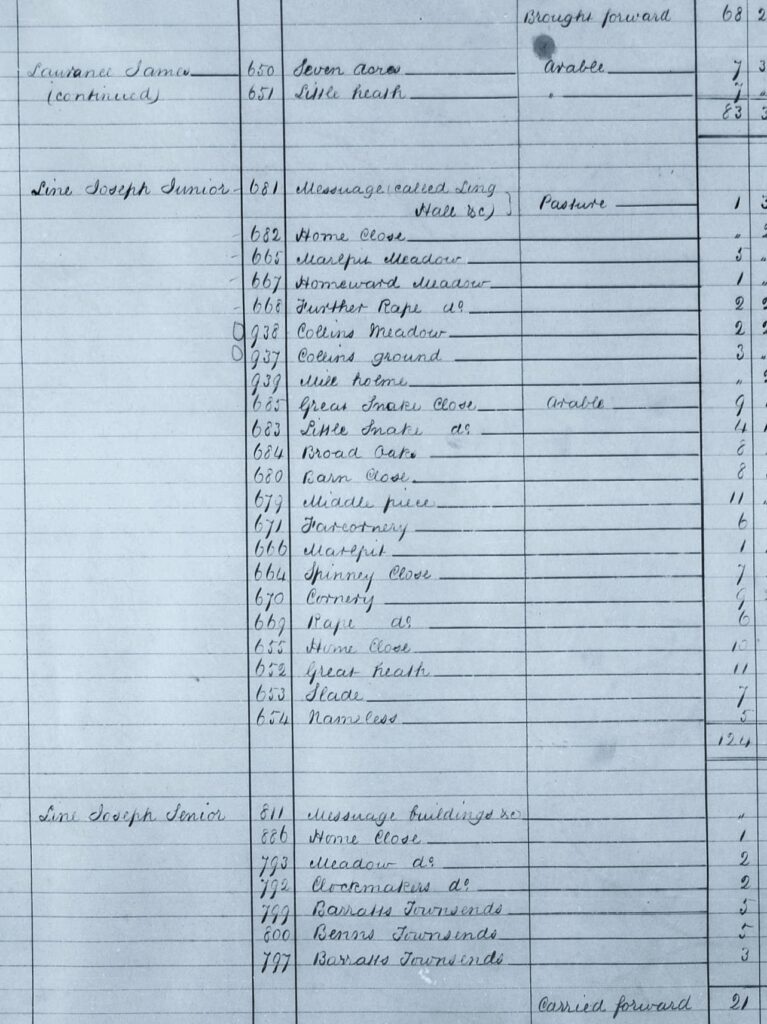 Brought forward 68 2
Laurance James 650 Seven acres Arable 7 3
(continued) 651 Little heath " 7 "
83 3
Line Joseph Junior 681 Messuage (called Ling
Hall &c) Pasture 1 3
682 Home Close " 2
665 Marlpit Meadow 5 "
667 Homeward Meadow 1 "
668 Further Rape do 2 2
938 Collins Meadow 2 2
937 Collins ground 3 "
939 Mill holme " 2
685 Great Snake Close Arable 9
683 Little Snake do 4
684 Broad Oaks 8
680 Barn Close 8
679 Middle piece 11
671 Farcornery 6
666 Marlpit 1
664 Spinney Close 7
670 Cornery 9
669 Rape do 6
655 Home Close 10
652 Great heath 11
653 Slade 7
654 Nameless 5
124
Line Joseph Senior 811 Messuage buildings &c "
886 Home Close 1
793 Meadow do 2
792 Clockmakers do 2
799 Barratts Townsends 5
800 Benns Townsends 5
797 Barratts Townsends 3
Carried forward 21